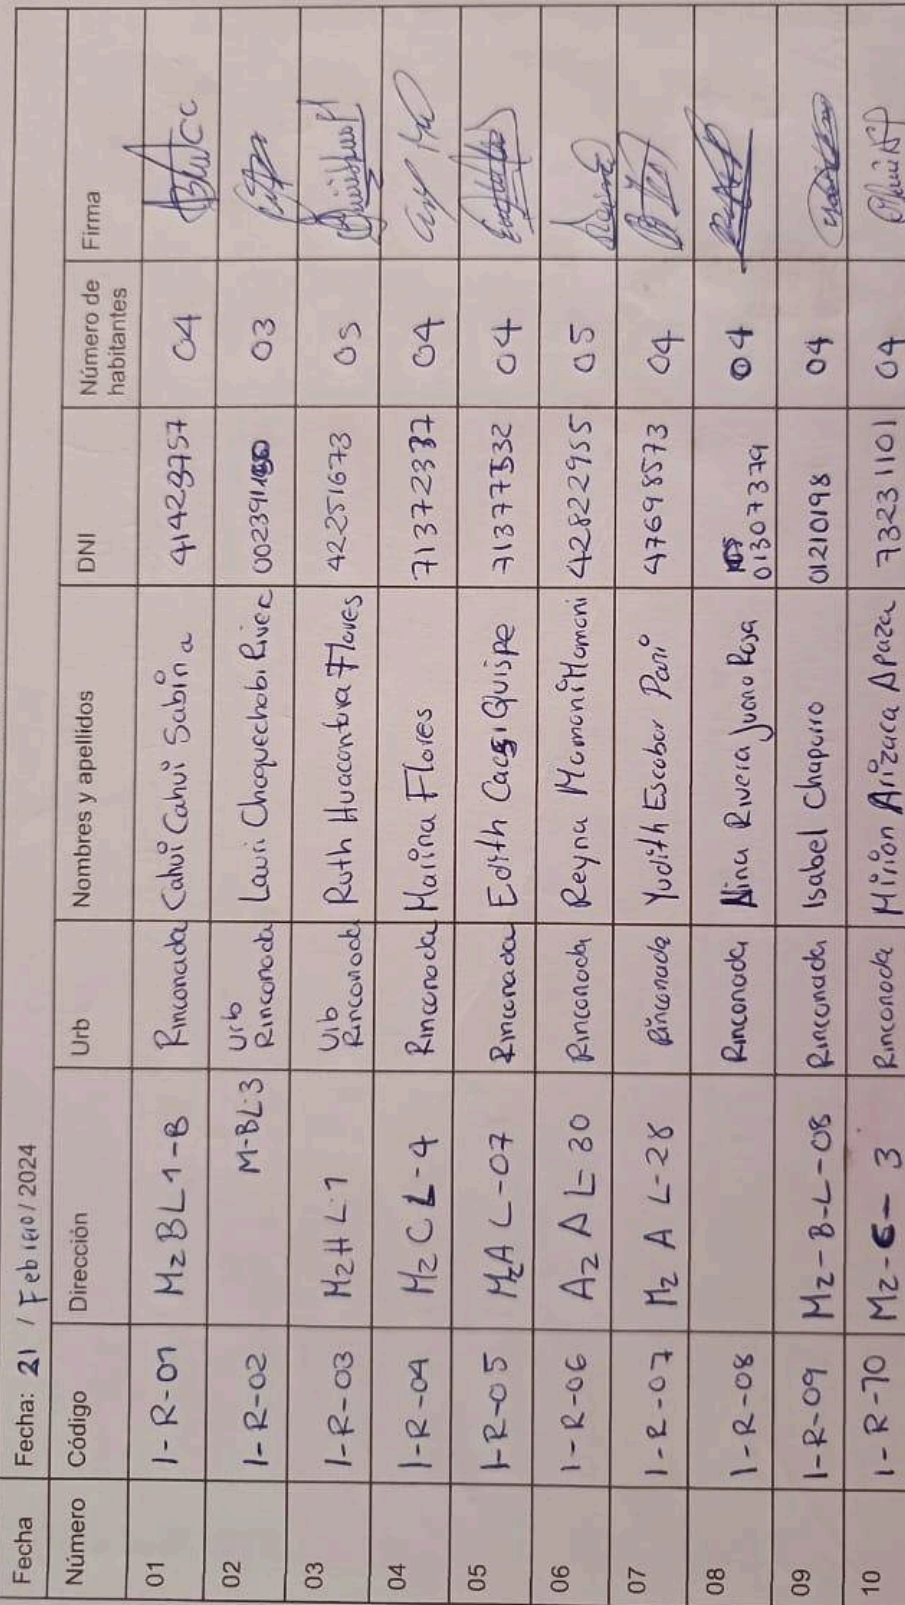 Fecha Fecha: 21 / Febrero / 2024
Número Código Dirección Urb Nombres y apellidos DNI Número de habitantes Firma
01 1-R-01 Mz B L 1-B Rinconada Cahui Cahui Sabina 41429757 04
02 1-R-02 M-B L:3 Urb Rinconada Lauri Choquechobi River 03
03 1-R-03 Mz H L:1 Urb Rinconada Ruth Huacantara Flores 42251673 05
04 1-R-04 Mz C L-4 Rinconada Marina Flores 71372337 04
05 1-R-05 Mz A L-07 Rinconada Edith Quispe 71377532 04
06 1-R-06 Az A L=30 Rinconada Reyna Mamani Mamani 42822955 05
07 1-R-07 Mz A L-28 Rinconada Yudith Escobar Pari 47698573 04
08 1-R-08 Rinconada Nina Rivera Juana Rosa 01307379 04
09 1-R-09 Mz-B-L-08 Rinconada Isabel Chaparro 01210198 04
10 1-R-10 Mz- 3 Rinconada Mirian Arizaca Apaza 73231101 04